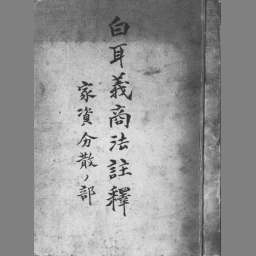 白耳義商法註釋
家資分散ノ部